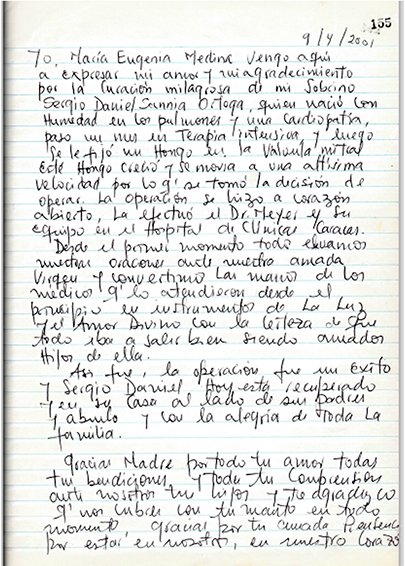 155
9/4/2001
Yo, María Eugenia Medina Vengo aquí
a expresar mi amor y mi agradecimiento
por la Curación milagrosa de mi Sobrino
Sergio Daniel Sannia Ortega, quien nació con
Humedad en los pulmones y una Cardiopatía,
paso un mes en Terapia intensiva, y luego
Se le fijó un Hongo en la Valvula mitral
Este Hongo Creció y se movia a una altísima
velocidad por lo q' se tomó la decisión de
operar. La operación se hizo a corazón
abierto, La efectuó el Dr. Meyer y su
equipo en el Hospital de Clínicas Caracas.
Desde el primer momento todo elevamos
nuestras oraciones ante nuestra amada
Virgen y convertimo Las manos de los
médicos q' lo atendieron desde el
principio en instrumentos de La Luz
y el Amor Divino con la certeza de que
todo iba a salir bien siendo amados
Hijos de ella.
Asi fue, la operación fue un éxito
y Sergio Daniel Hoy está recuperado
y en su casa al lado de sus padres
y abuelo y con la alegría de Toda La
familia.
Gracias Madre por todo tu amor todas
tus bendiciones y toda tu Comprensión
ante nosotros tus hijos y te agradezco
q' nos cubres con tu manto en todo
momento gracias por tu amada Presencia
por estar en nosotros, en nuestro Corazón